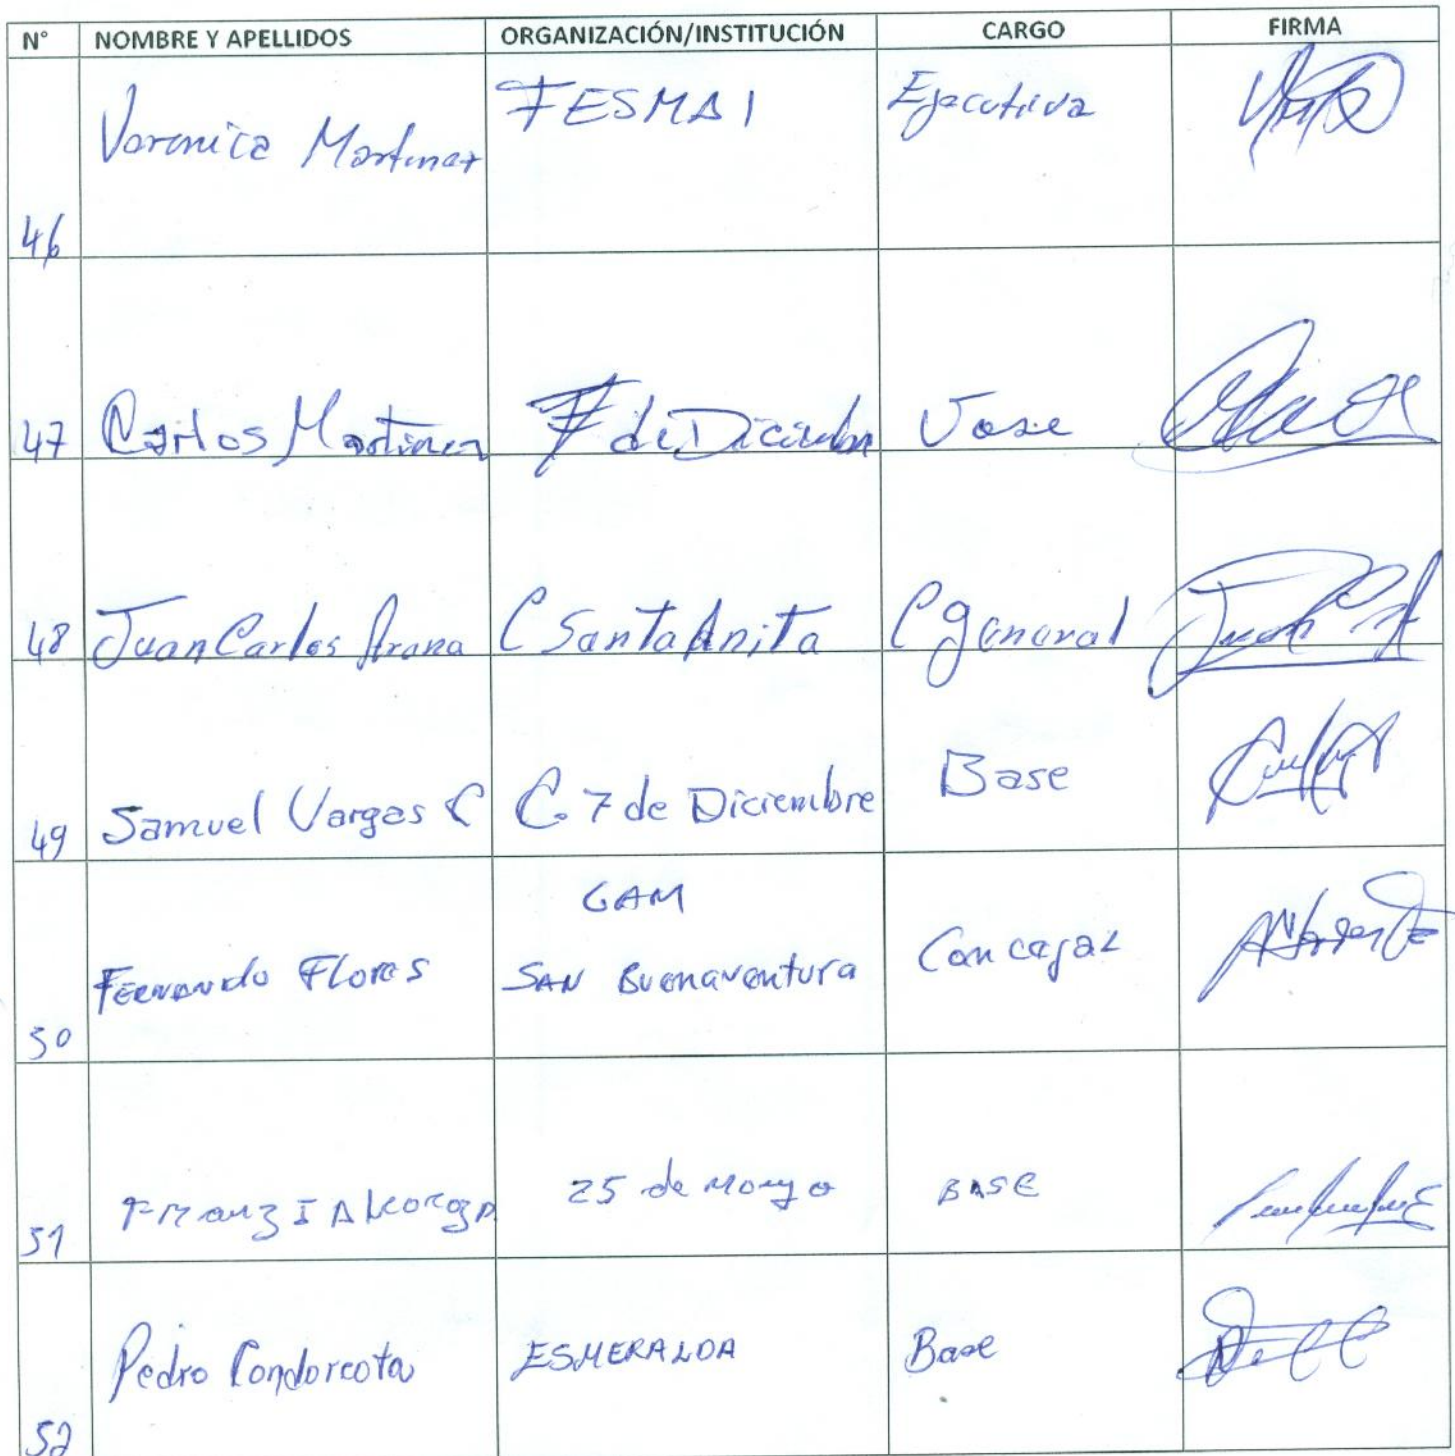 N° NOMBRE Y APELLIDOS ORGANIZACIÓN/INSTITUCIÓN CARGO FIRMA
46 Veronica Martinez FESMAI Ejecutiva
47 Carlos Martinez 7 de Diciembre Vase
48 Juan Carlos Arana C Santa Anita C general
49 Samuel Vargas C C. 7 de Diciembre Base
50 Fernando Flores GAM
SAN Buenaventura Concejal
51 Franz I 25 de Mayo BASE
52 Pedro Condorcota ESMERALDA Base